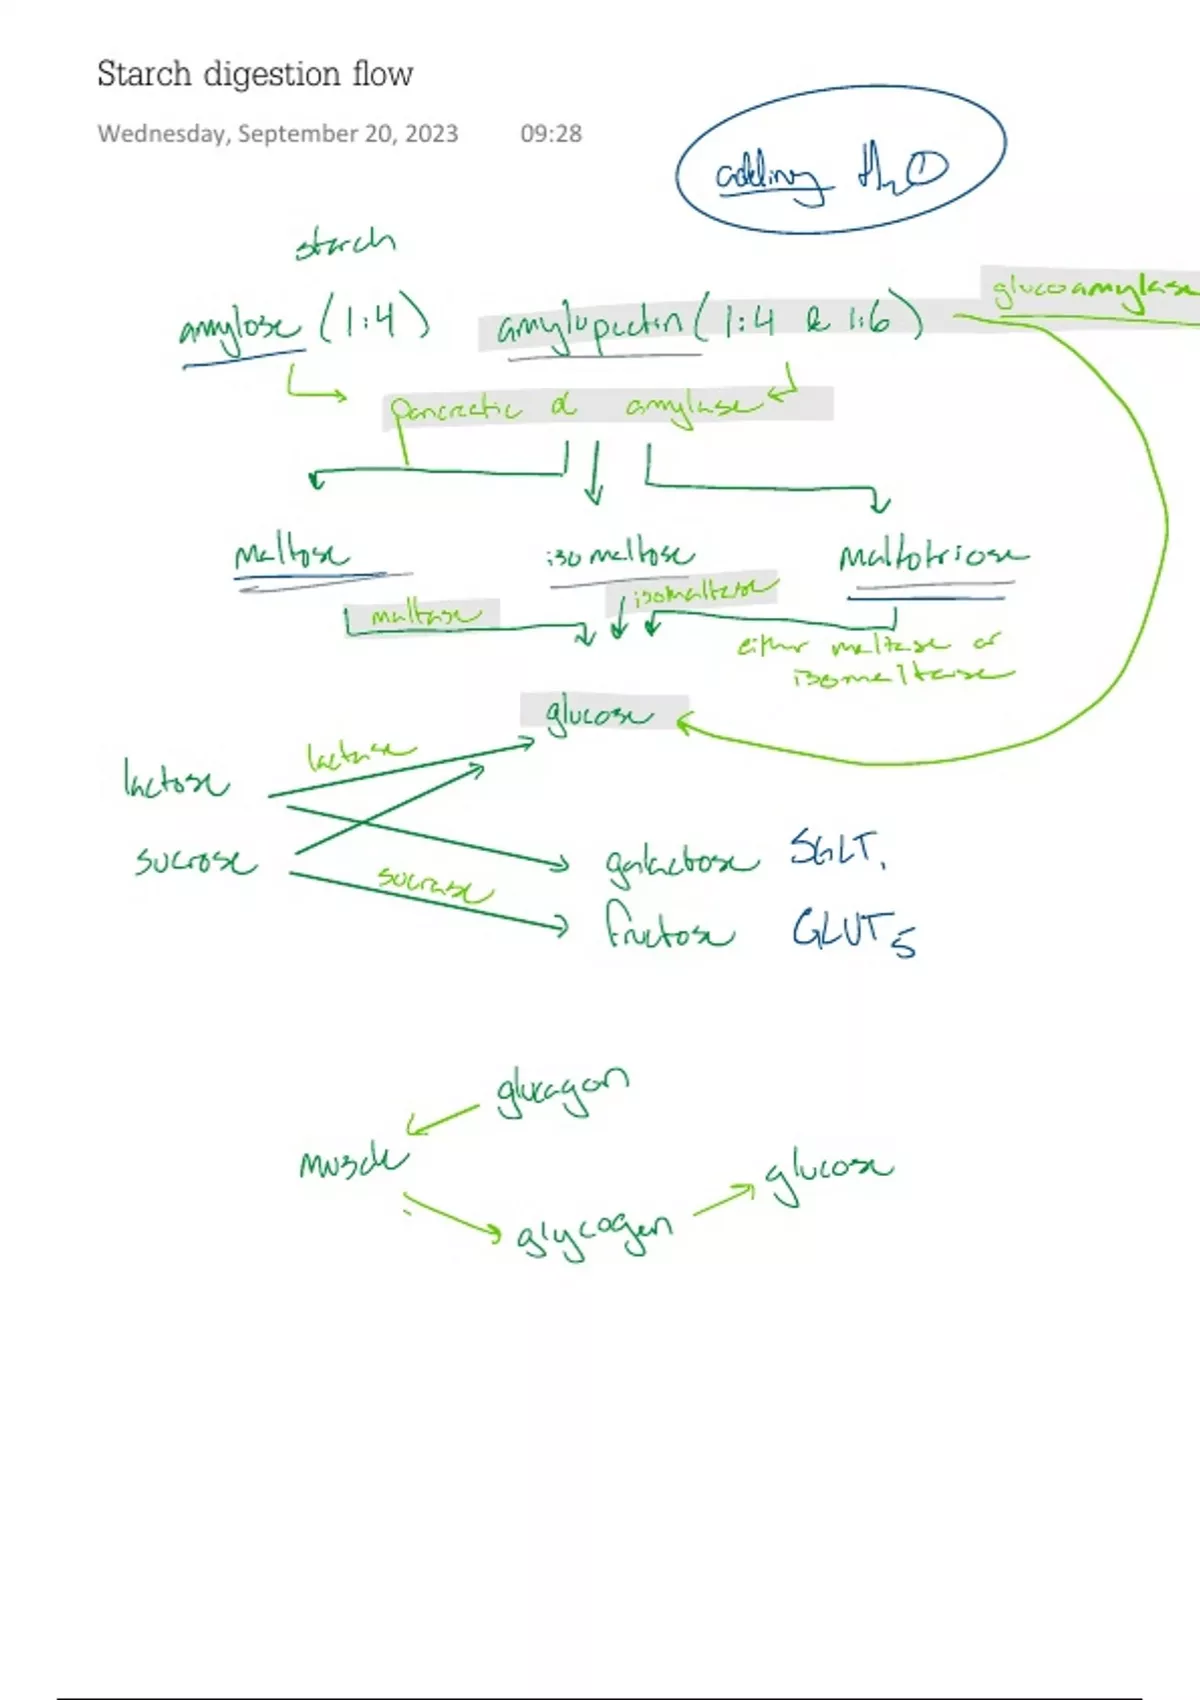 Starch digestion flow
Wednesday, September 20, 2023 09:28
adding H2O
starch
glucoamylase
amylose (1:4) amylupectin (1:4 & 1:6)
pancreatic α amylase
maltose isomaltose maltotriose
maltase isomaltase
either maltase or
isomaltase
glucose
lactase
lactose
sucrose galactose SGLT1
sucrase
fructose GLUT5
glucagon
muscle glucose
glycogen